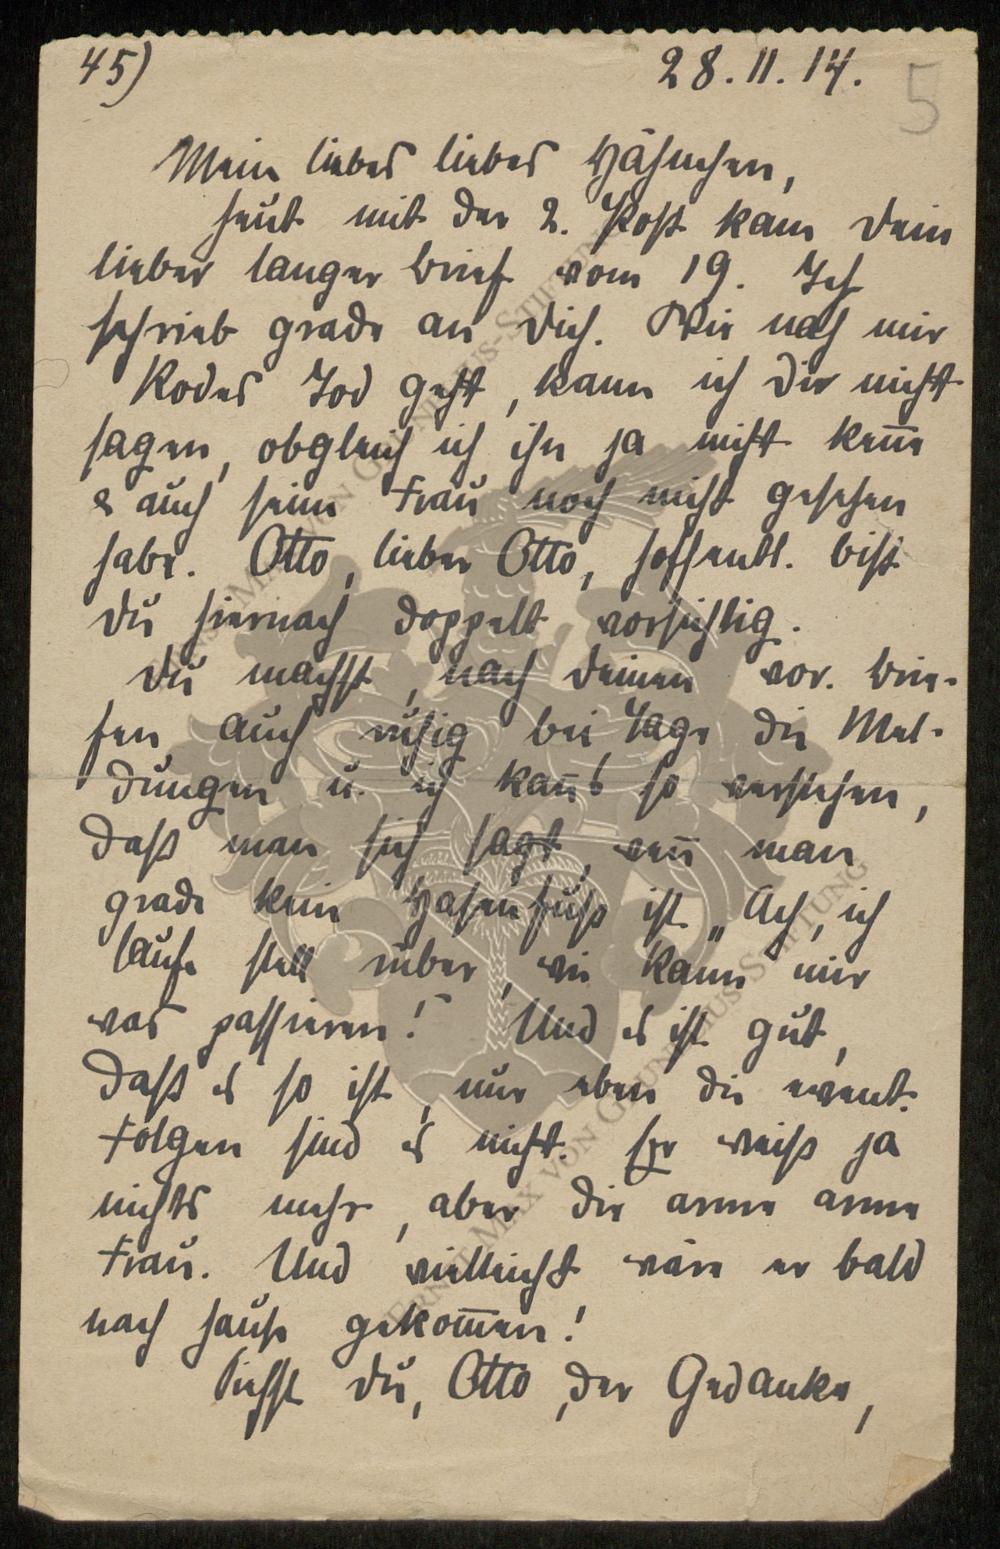 45) 28.11.14. 5
Mein liebes liebes Hähnchen,
heut mit der 2. Post kam Dein
lieber langer Brief vom 19. Ich
schrieb grade an Dich. Wie nah mir
Rodes Tod geht, kann ich Dir nicht
sagen, obgleich ich ihn ja nicht keñe
& auch seine Frau noch nicht gesehen
habe. Otto, lieber Otto, hoffentl. bist
Du hiernach doppelt vorsichtig.
Du machst, nach Deinen vor. Brie-
fen auch ruhig bei Tage die Mel-
dungen u. ich kañs so verstehen,
daß man sich sagt, weñ man
grade kein Hasenfuß ist „Ach, ich
laufe stell rüber, wie kann mir
was passieren!" Und es ist gut,
daß es so ist, nur eben die event.
Folgen sind es nicht. Er weiß ja
nichts mehr, aber die arme arme
Frau. Und vielleicht wäre er bald
nach Hause gekom̄en!
Siehst Du, Otto, der Gedanke,
ERNST MAX VON GRUNELIUS-STIFTUNG
ERNST MAX VON GRUNELIUS-STIFTUNG